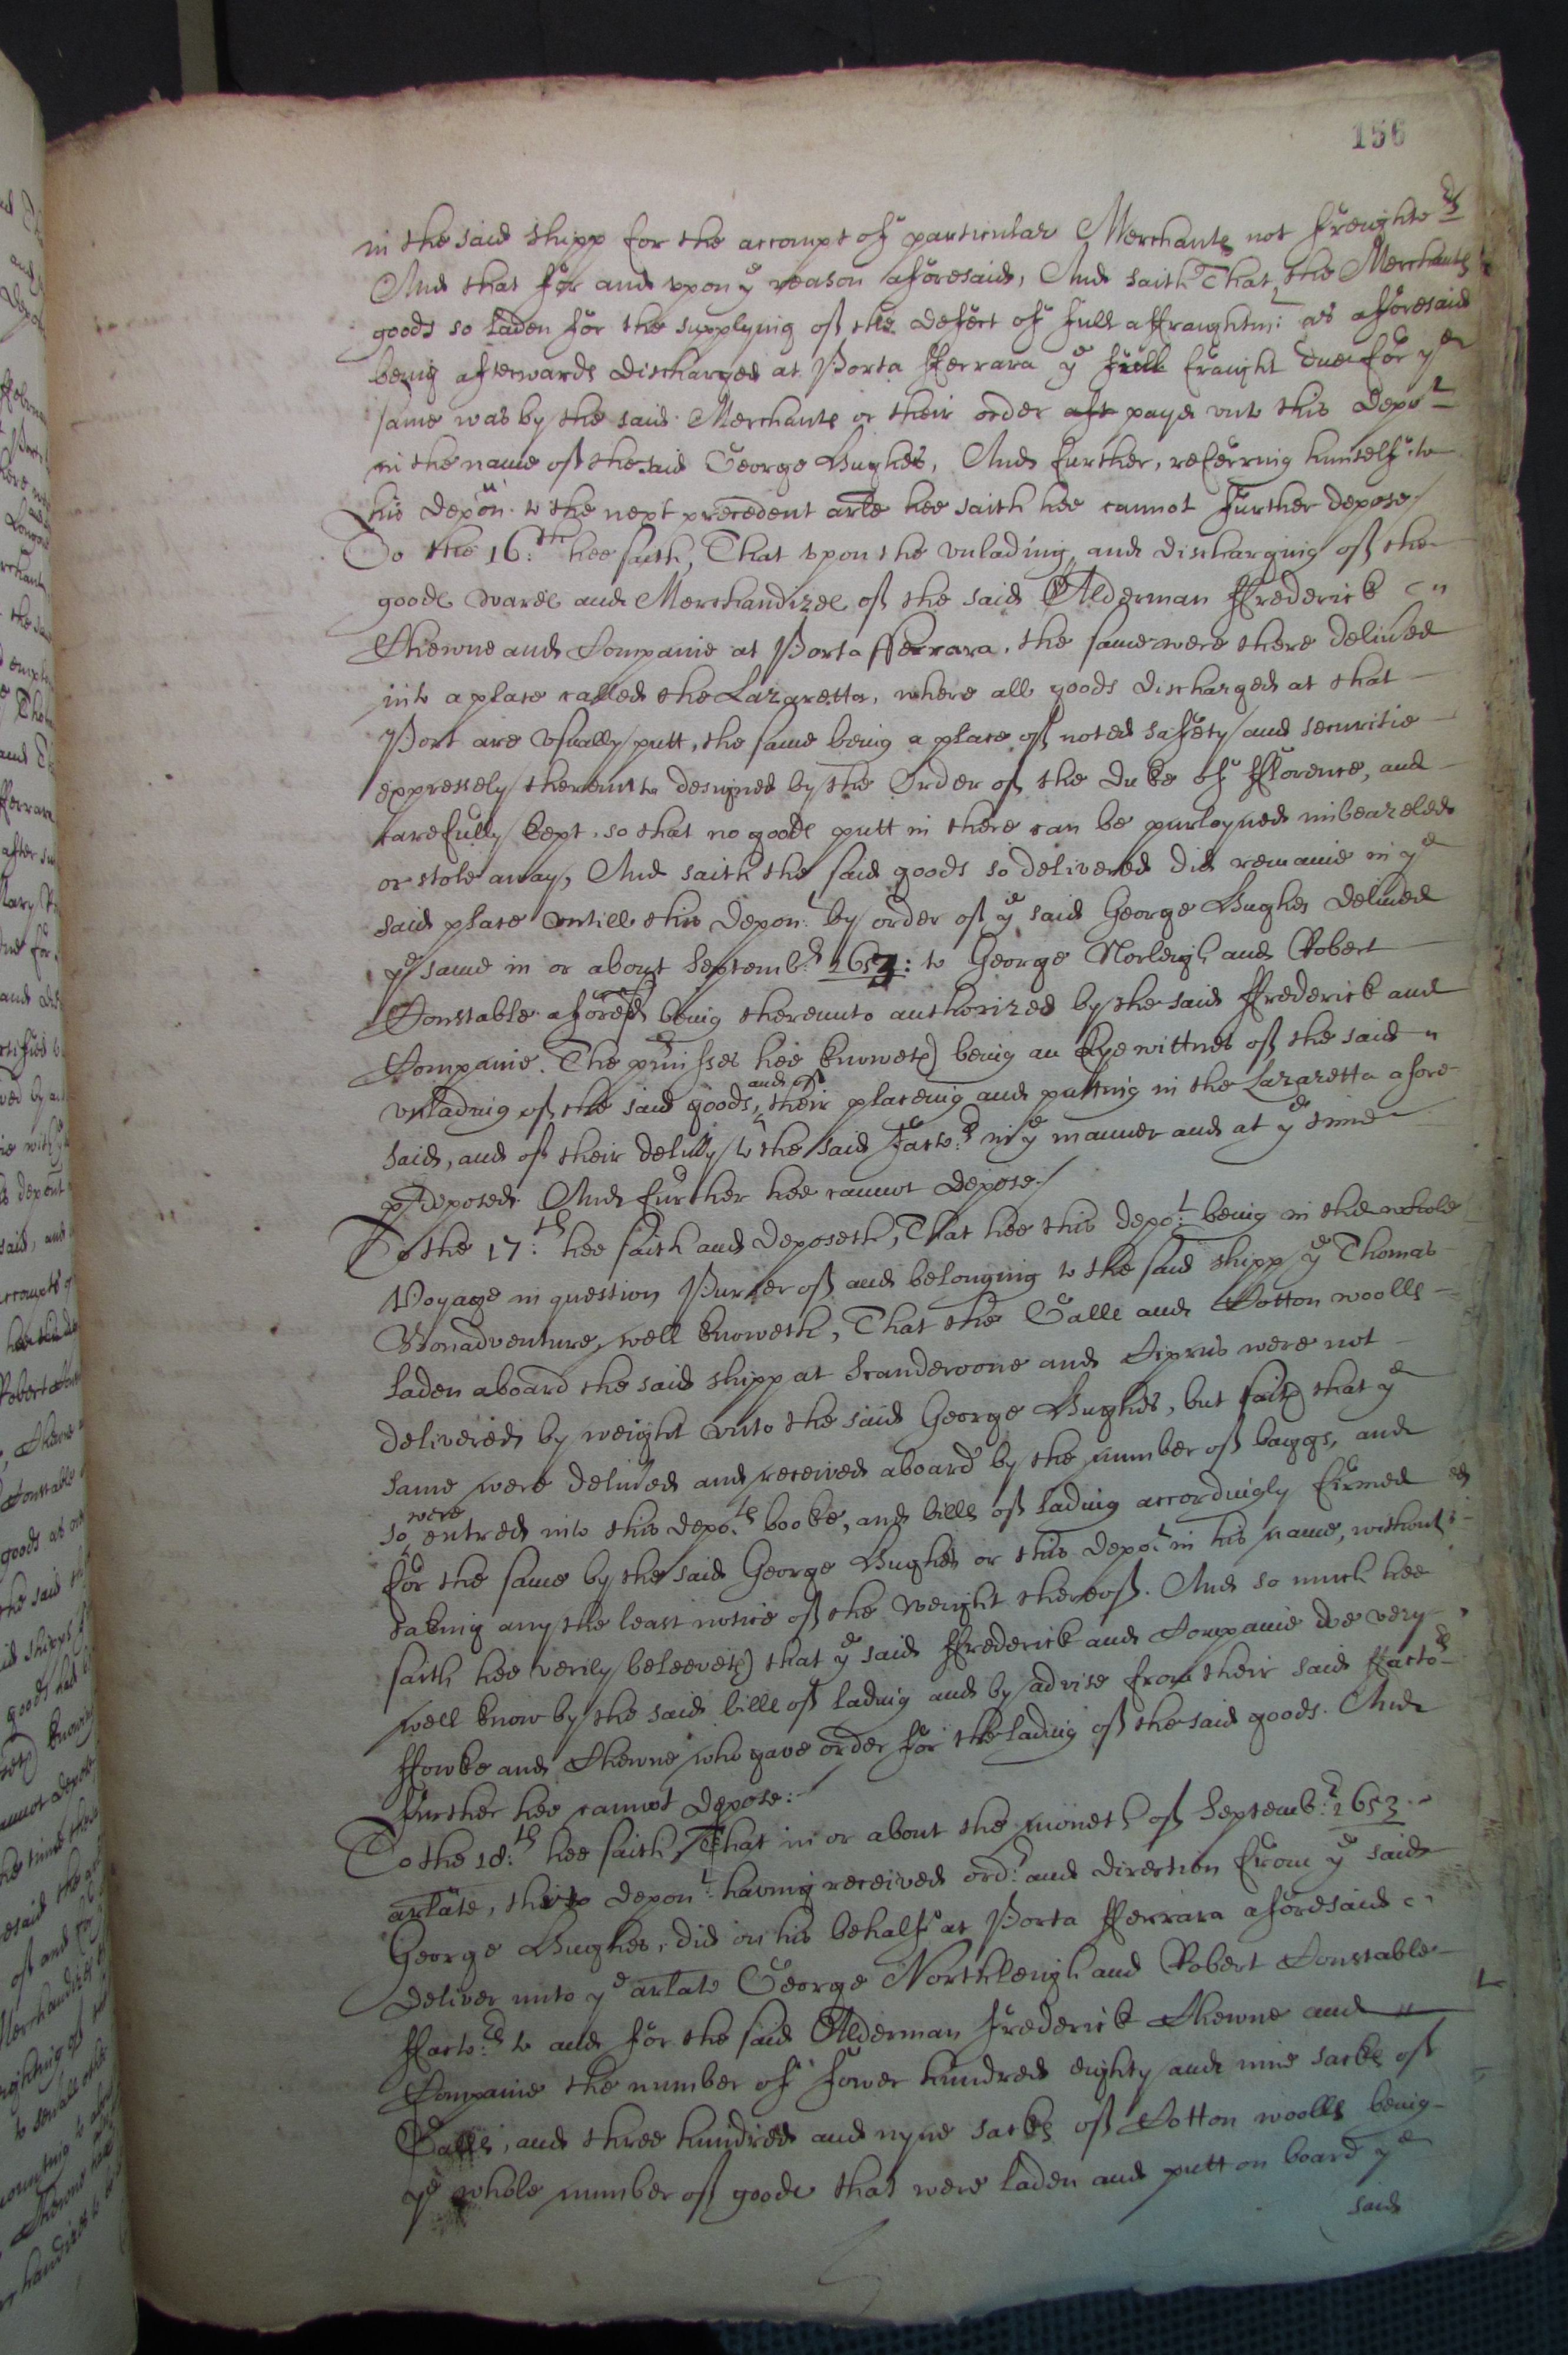 156
in the said shipp for the accompt of particular Merchants not freighters
And that for and upon ye reason aforesaid, And saith That the Merchants
goods so laden for the supplying of the defect of full affraightmt: as aforesaid
being afterwards discharged at Porta fferrara ye full fraight due for ye
same was by the said Merchants or their order payd unto this depot
in the name of the said George Hughes, And further, referring himself to
his depon to the next precedent arle hee saith hee cannot further depose/
To the 16:th hee saith, That upon the unlading and discharging of the
goods wares and Merchandizes of the said Alderman ffrederick
Chewne and Companie at Porta fferrara, the same were there delived
into a place called the Lazaretta, where all goods discharged at that
Port are usually putt, the same being a place of noted safety and securitie
expressely thereunto designed by the Order of the Duke of fflorence, and
carefully kept, so that no goods putt in there can be purloyned imbeazeled
or stole away, And saith the said goods so delivered did remaine in ye
said place untill this depon by order of ye said George Hughes delived
ye same in or about Septembr 1653: to George Norleigh and Robert
Constable aforesd being thereunto authorized by the said ffrederick and
Companie. The prmisses hee knoweth being an Eye wittnes of the said
unlading of the said goods, and of their placeing and putting in the Lazaretta afore-
said, and of their delivy to the said factors in ye manner and at ye time
pdeposed. And further hee cannot depose/
To the 17:th hee saith and deposeth, That hee this depot: being in the whole
Voyage in question Purser of and belonging to the said shipp ye Thomas
Bonadventure, well knoweth, That the Galls and Cotton woolls
laden aboard the said shipp at Scanderoone and Ciprus were not
delivered by weight unto the said George Hughes, but saith that ye
same were delived and received aboard by the number of baggs, and
so were entred into this depots booke, and bills of lading accordingly firmed
for the same by the said George Hughes or this depot in his name, without
taking any the least notice of the weight thereof. And so much hee
saith hee verily beleeveth that ye said ffrederick and Companie doe very
well know by the said bills of lading and by advise from their said ffactors
ffowke and Chewne who gave order for the lading of the said goods. And
further hee cannot depose:
To the 18:th hee saith That in or about the moneth of Septembr: 1653
arlate, this depont: having received ordr: and direction from ye said
George Hughes, did on his behalf at Porta fferrara aforesaid
deliver unto ye arlate George Northleigh and Robert Constable
ffactrs to and for the said Alderman frederick Chewne and
Companie the number of fower hundred eighty and nine sacks of
Galls, and three hundred and nyne sacks of Cotton woolls being
ye whole number of goods that were laden and putt on board ye
said